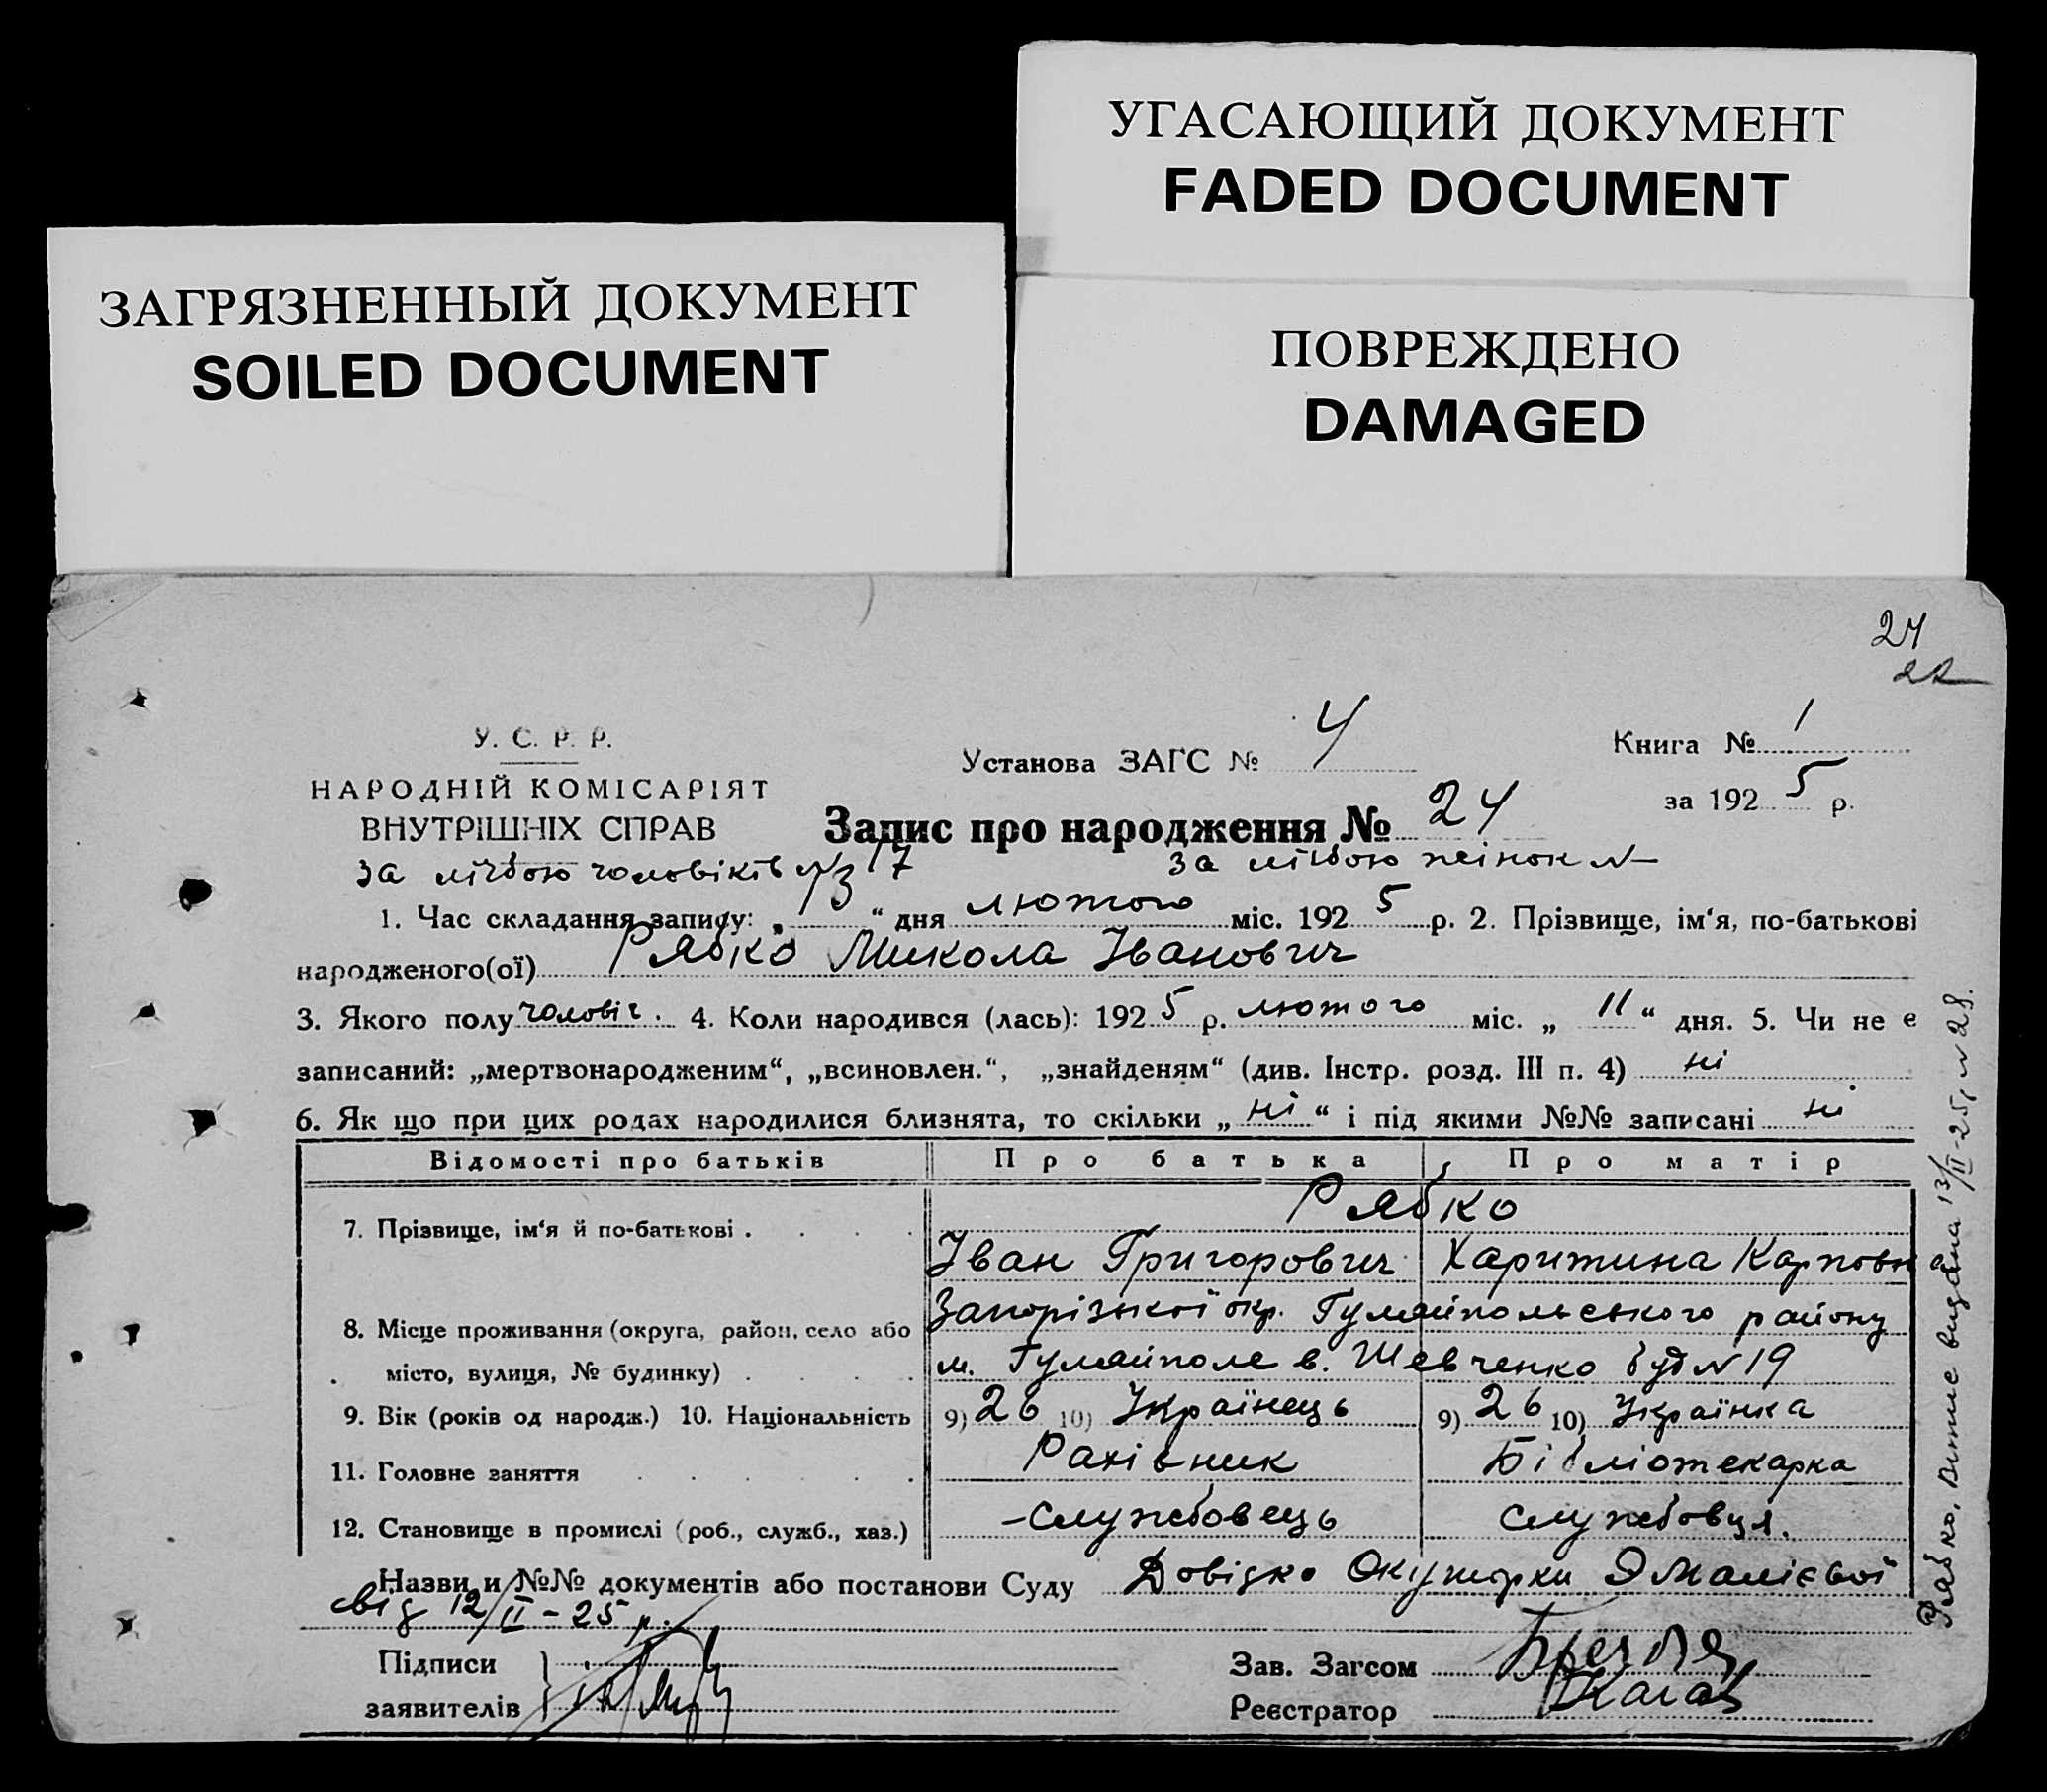 УГАСАЮЩИЙ ДОКУМЕНТ
FADED DOCUMENT
ЗАГРЯЗНЕННЫЙ ДОКУМЕНТ
SOILED DOCUMENT
ПОВРЕЖДЕНО
DAMAGED
24
22
У. С. Р. Р.
НАРОДНІЙ КОМІСАРІЯТ
ВНУТРІШНІХ СПРАВ
Установа ЗАГС № 4
Книга № 1
за 1925 р.
Запис про народження № 24
за лічбою чоловіків № 17 за лічбою жінок № —
1. Час складання запису: „13“ дня лютого міс. 1925 р. 2. Прізвище, ім‘я, по-батькові
народженого(ої) Рябко Микола Іванович
3. Якого полу чоловіч. 4. Коли народився (лась): 1925 р. лютого міс. „11“ дня. 5. Чи не є
записаний: „мертвонародженим“, „всиновлен.“, „знайденям“ (див. Інстр. розд. III п. 4) ні
6. Як що при цих родах народилися близнята, то скільки „ні“ і під якими №№ записані ні
Відомості про батьків Про батька Про матір
Рябко
7. Прізвище, ім‘я й по-батькові . . . .
Іван Григорович Харитина Карповна
8. Місце проживання (округа, район, село або Запорізької окр. Гуляйпольського району
місто, вулиця, № будинку) . . . . м. Гуляйполе в. Шевченко буд № 19
9. Вік (років од народж.) 10. Національність 9) 26 10) Українець 9) 26 10) Українка
11. Головне заняття . . . . . Рахівник Бібліотекарка
12. Становище в промислі (роб., служб., хаз.) – Службовець Службовця.
Назви и №№ документів або постанови Суду Довідка Окушорки
від 12/II – 25 р.
Підписи
заявителів
Зав. Загсом
Реєстратор
Рябко. Витяг видана 13/II-25, № 28.